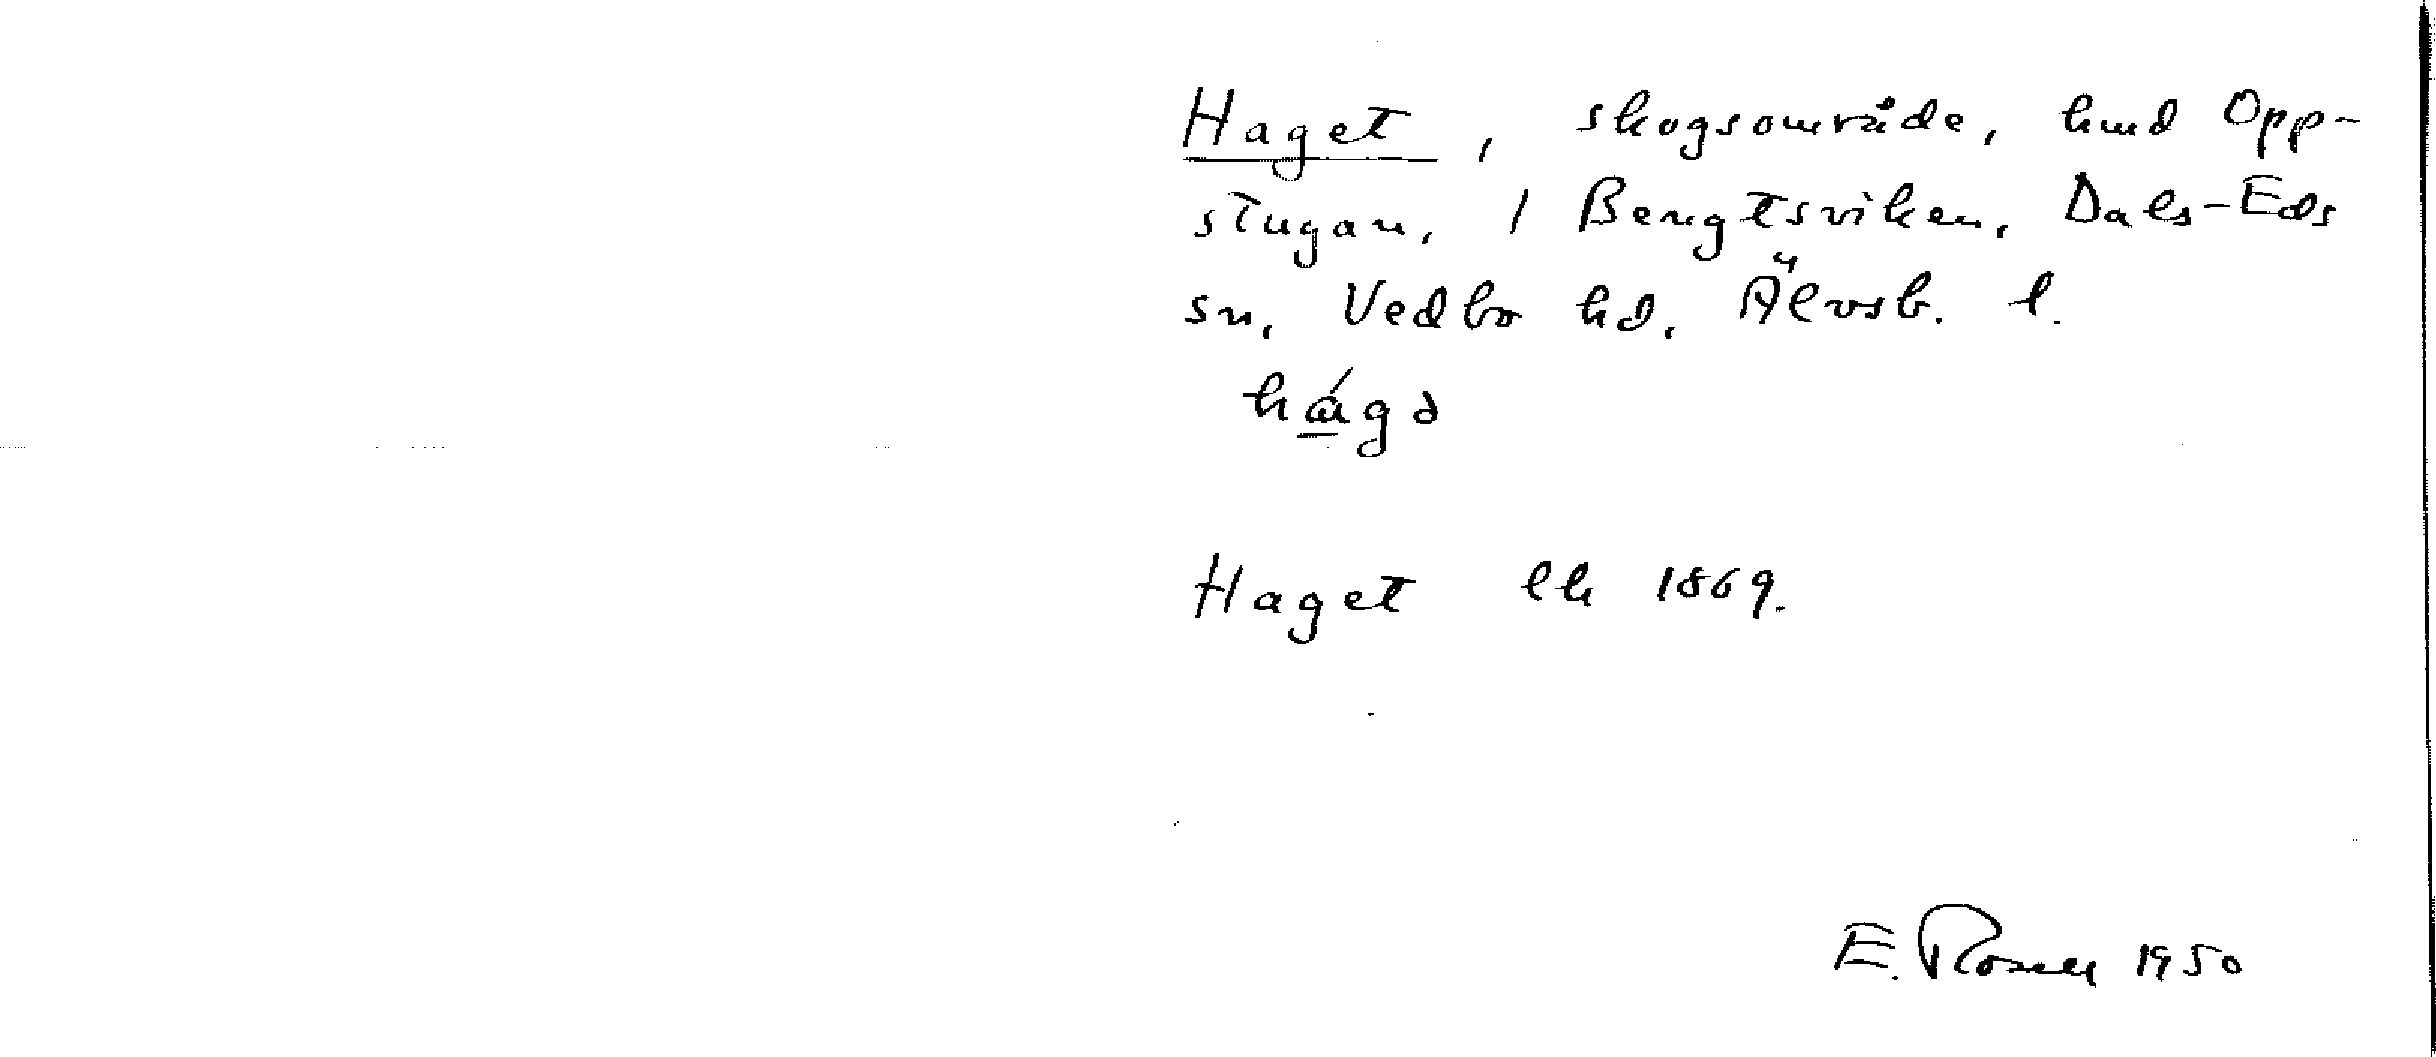 Haget, skogsområde, hmd Opp-
stugan, 1 Bengtsviken, Dals-Eds
sn, Vedbo hd, Älvsb. l.
Haget lk 1869.
E. Rosell 1950